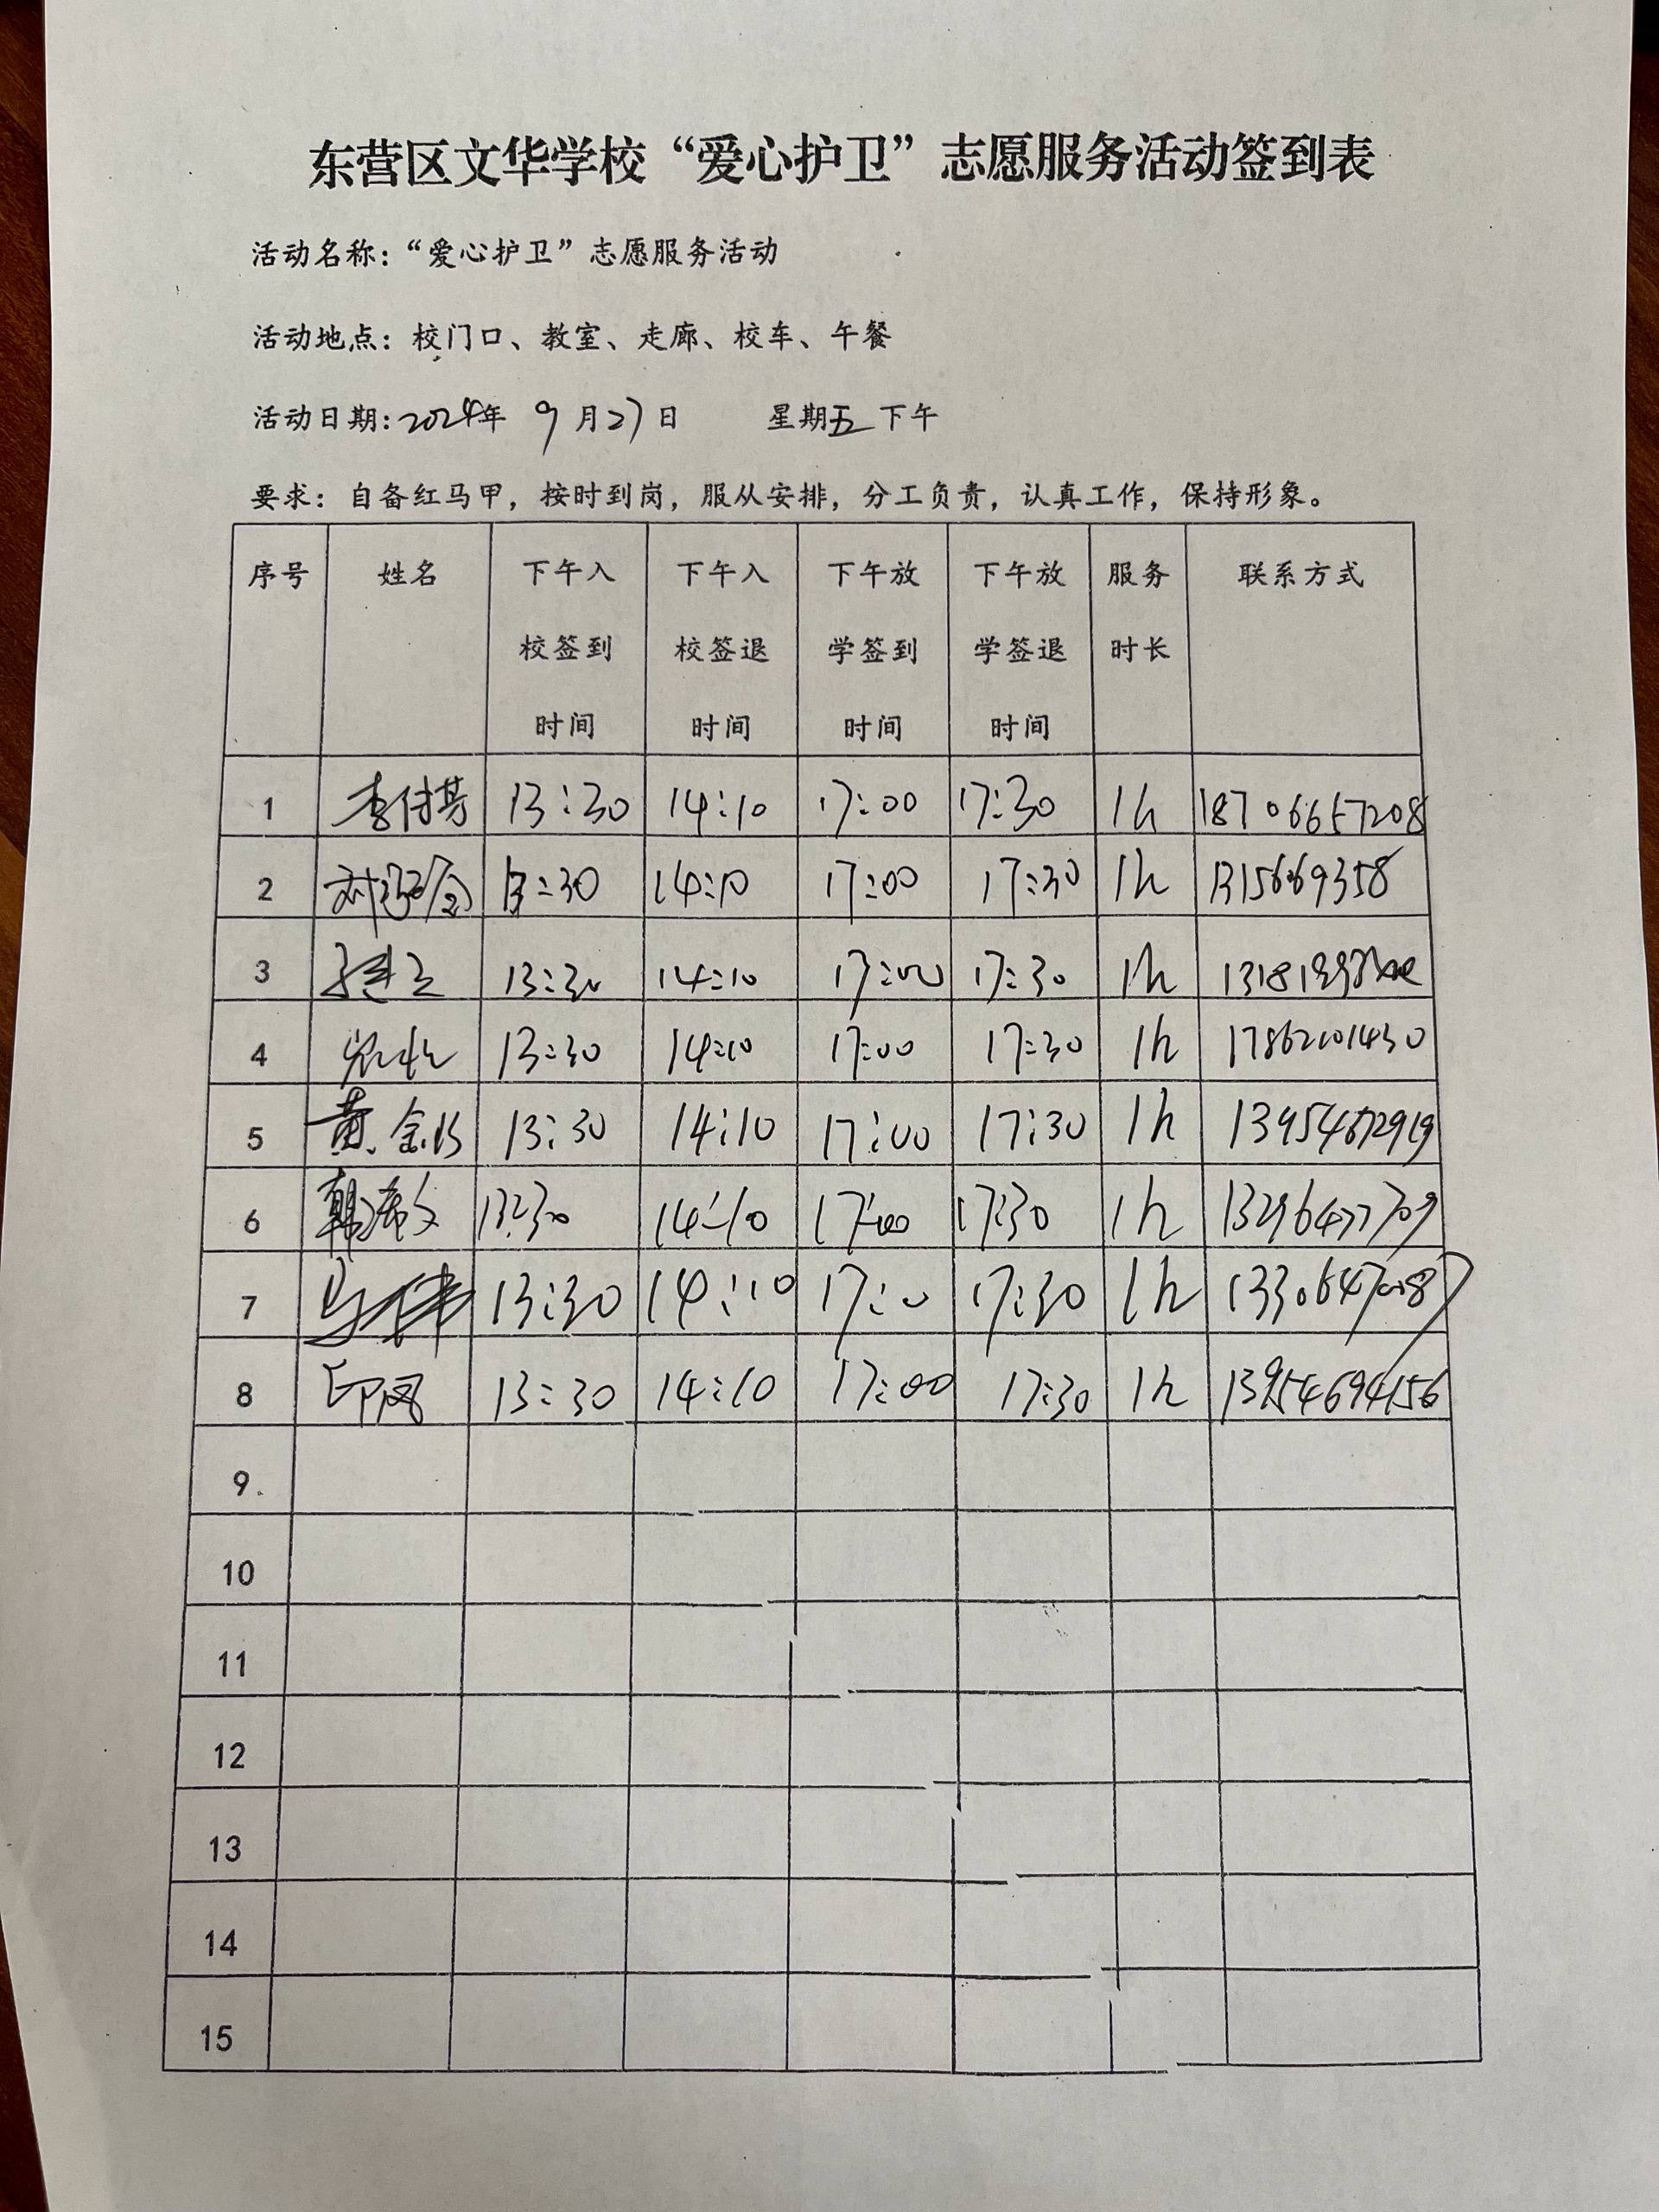 东营区文华学校“爱心护卫”志愿服务活动签到表
活动名称：“爱心护卫”志愿服务活动
活动地点：校门口、教室、走廊、校车、午餐
活动日期：2024年 9月27日 星期五 下午
要求：自备红马甲，按时到岗，服从安排，分工负责，认真工作，保持形象。
序号 姓名 下午入校签到时间 下午入校签退时间 下午放学签到时间 下午放学签退时间 服务时长 联系方式
1 李付芳 13:30 14:10 17:00 17:30 1h 18706657208
2 13:30 14:10 17:00 17:30 1h
3 13:30 14:10 17:00 17:30 1h
4 13:30 14:10 17:00 17:30 1h 17862101430
5 13:30 14:10 17:00 17:30 1h
6 13:30 14:10 17:00 17:30 1h 13296477709
7 13:30 14:10 17:00 17:30 1h
8 印凤 13:30 14:10 17:00 17:30 1h 13954694156
9
10
11
12
13
14
15